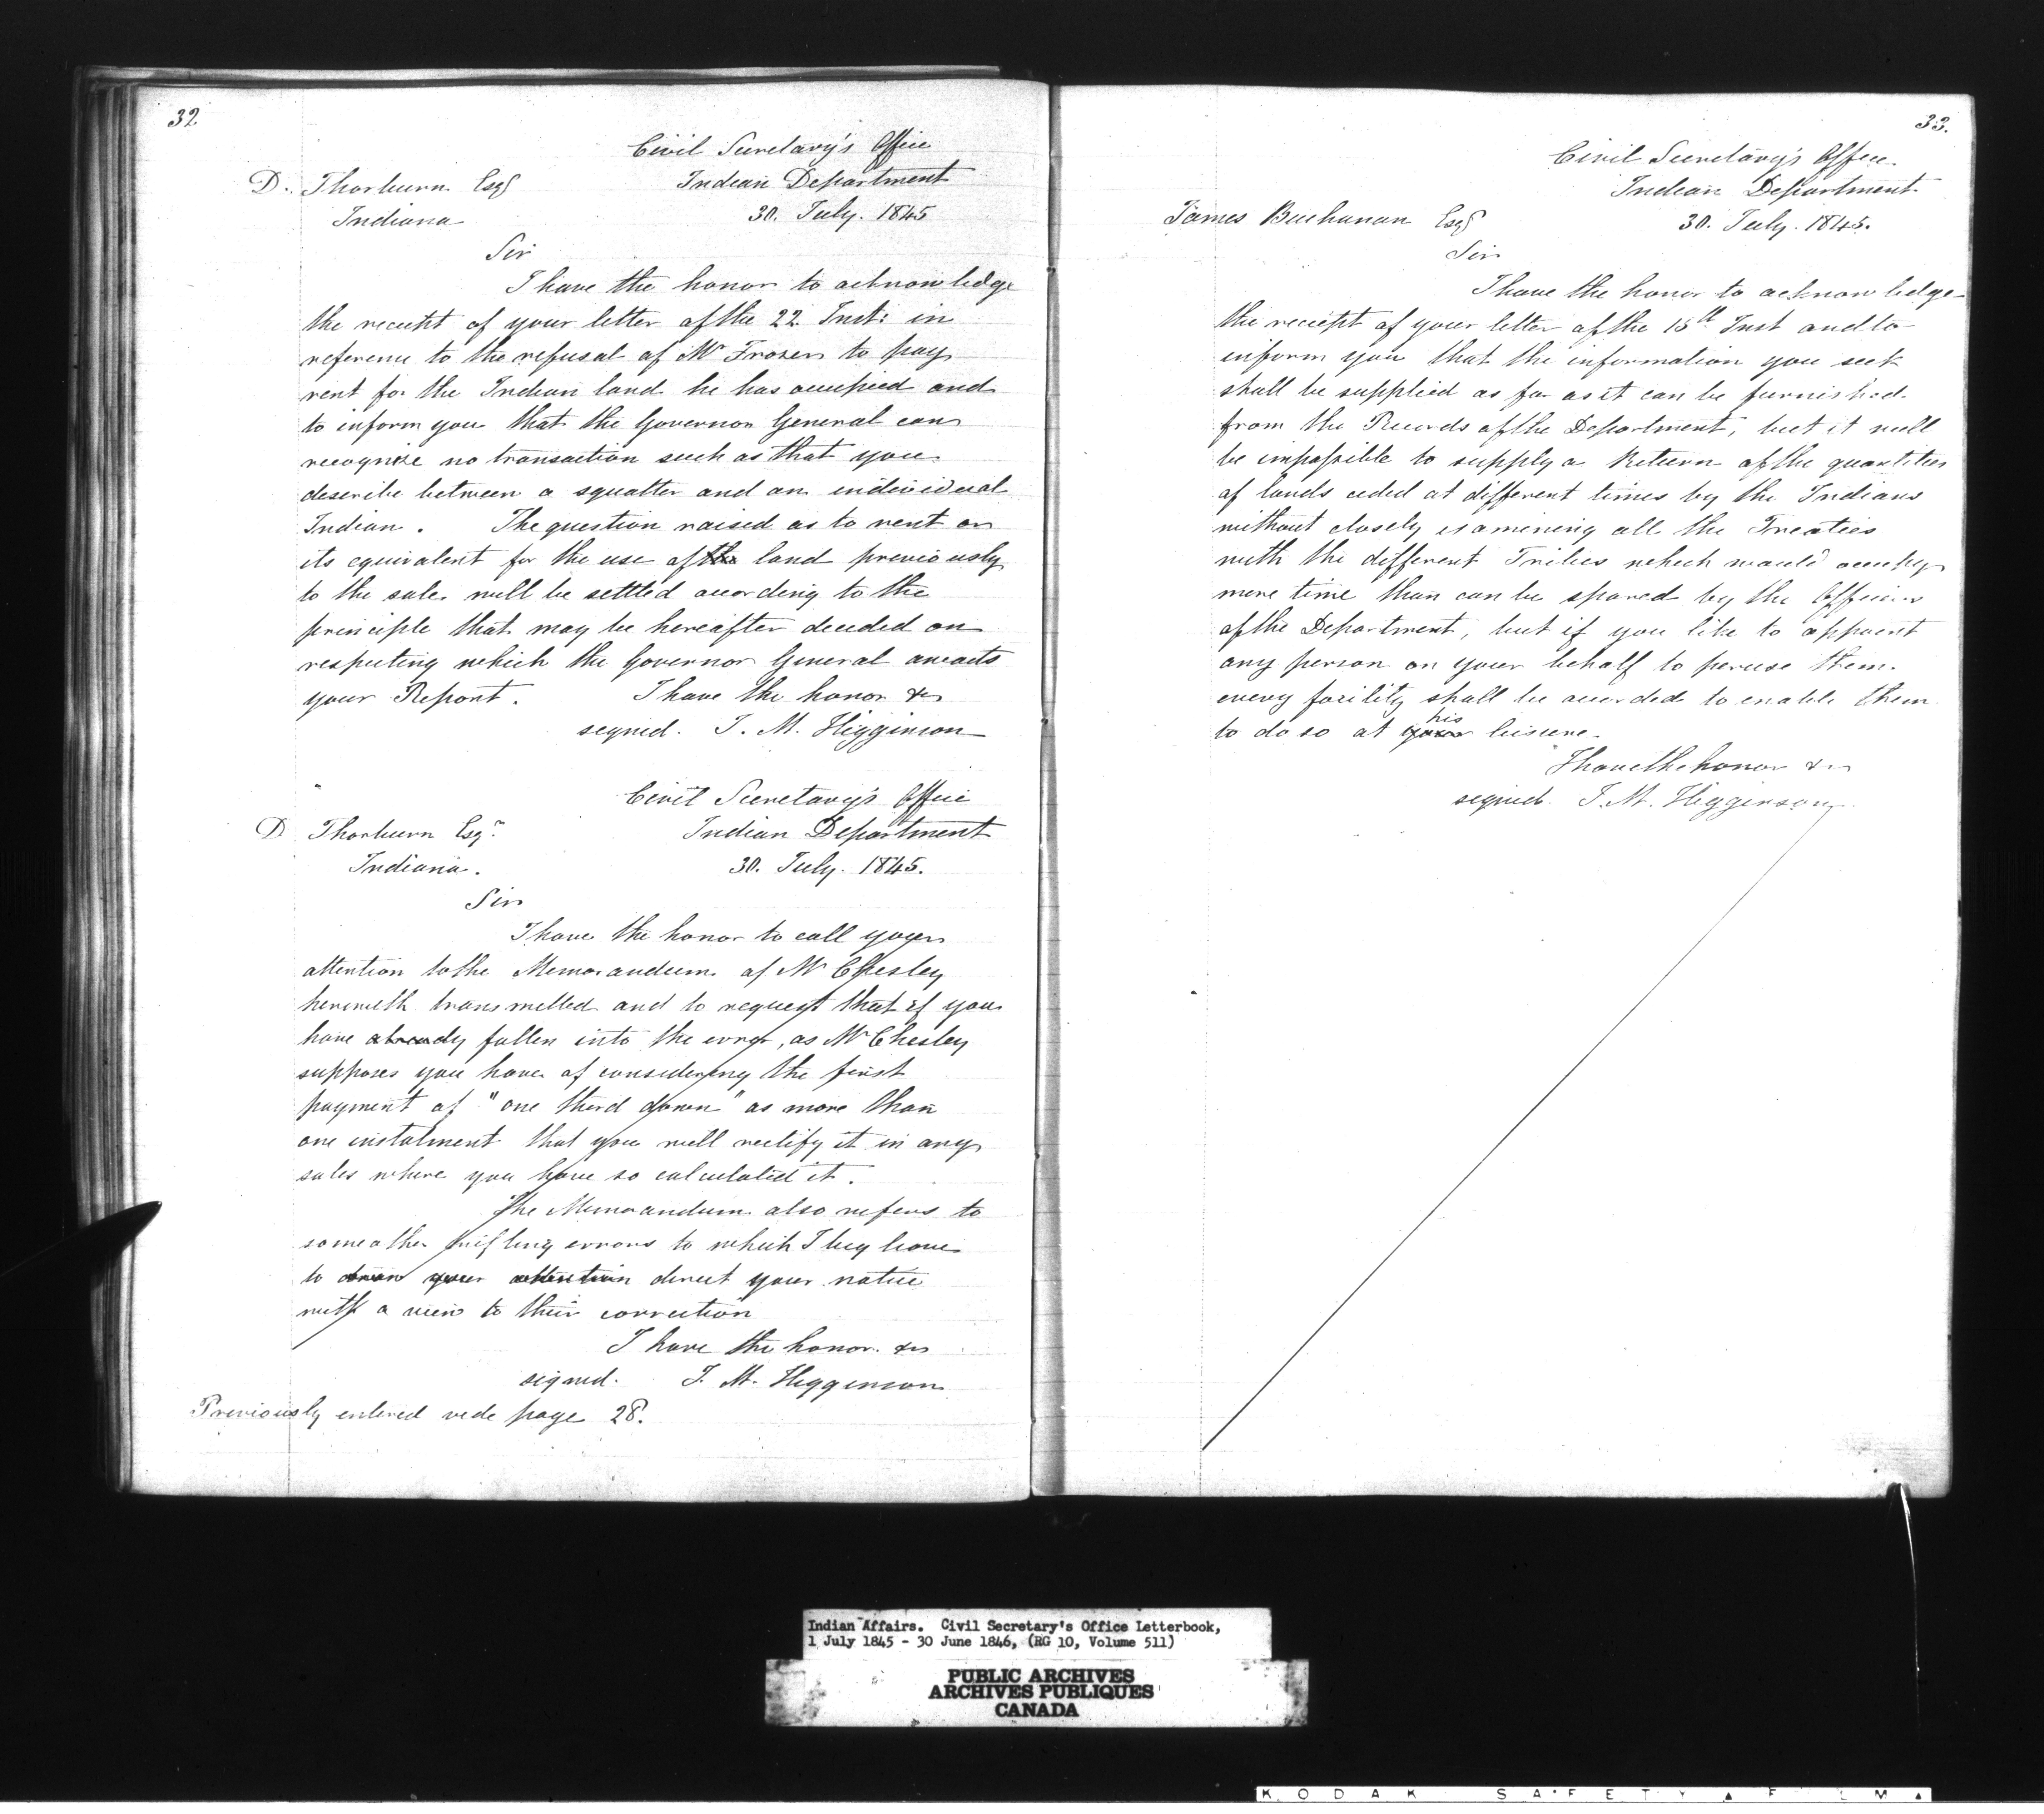 32
Civil Secretary's Office
D. Thorburn Esqr Indian Department
Indiana 30. July. 1845
Sir
I have the honor to acknowledge
the receipt of your letter of the 22 Inst: in
reference to the refusal of Mr Frozer to pay
rent for the Indian land he has occupied and
to inform you that the Governor General can
recognize no transaction such as that you
describe between a squatter and an individual
Indian. The question raised as to rent or
its equivalent for the use of the land previously
to the sale will be settled according to the
principle that may be hereafter decided on
respecting which the Governor General awaits
your Report. I have the honor &c
signed. J. M. Higginson
Civil Secretary's Office
D Thorburn Esqr Indian Department
Indiana. 30. July. 1845.
Sir
I have the honor to call your
attention to the Memorandum of Mr Chesley
herewith transmitted and to request that if you
have already fallen into the error, as Mr Chesley
supposes you have of considering the first
payment of "one third down" as more than
one instalment that you will rectify it in any
sales where you have so calculated it.
The Memorandum also refers to
some other trifling errors to which I beg leave
to draw your attention direct your notice
with a view to their correction
I have the honor. &c
signed. J. M. Higginson
Previously entered vide page 28.
33.
Civil Secretary's Office.
Indian Department
James Buchanan Esqr 30. July. 1845.
Sir
I have the honor to acknowledge
the reciept of your letter of the 15th Inst and to
inform you that the information you seek
shall be supplied as far as it can be furnished
from the Records of the Department, but it will
be impossible to supply a Return of the quantities
of lands ceded at different times by the Indians
without closely examining all the Treaties
with the different Tribes which would occupy
more time than can be spared by the Officers
of the Department, but if you like to appoint
any person on your behalf to peruse them.
every facility shall be accorded to enable them
to do so at your his leisure.
I have the honor &c
signed J. M. Higginson
Indian Affairs. Civil Secretary's Office Letterbook,
1 July 1845 - 30 June 1846, (RG 10, Volume 511)
PUBLIC ARCHIVES
ARCHIVES PUBLIQUES
CANADA
KODAK SAFETY FILM